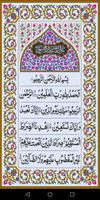 بِسْمِ اللهِ الرَّحْمٰنِ الرَّحِيْمِ
اَلْحَمْدُ لِلّٰهِ رَبِّ الْعٰلَمِيْنَ
الرَّحْمٰنِ الرَّحِيْمِ مٰلِكِ يَوْمِ الدِّيْنِ
اِيَّاكَ نَعْبُدُ وَاِيَّاكَ نَسْتَعِيْنُ
اِهْدِنَا الصِّرَاطَ الْمُسْتَقِيْمَ صِرَاطَ
الَّذِيْنَ اَنْعَمْتَ عَلَيْهِمْ غَيْرِ
الْمَغْضُوْبِ عَلَيْهِمْ وَلَا الضَّآلِّيْنَ